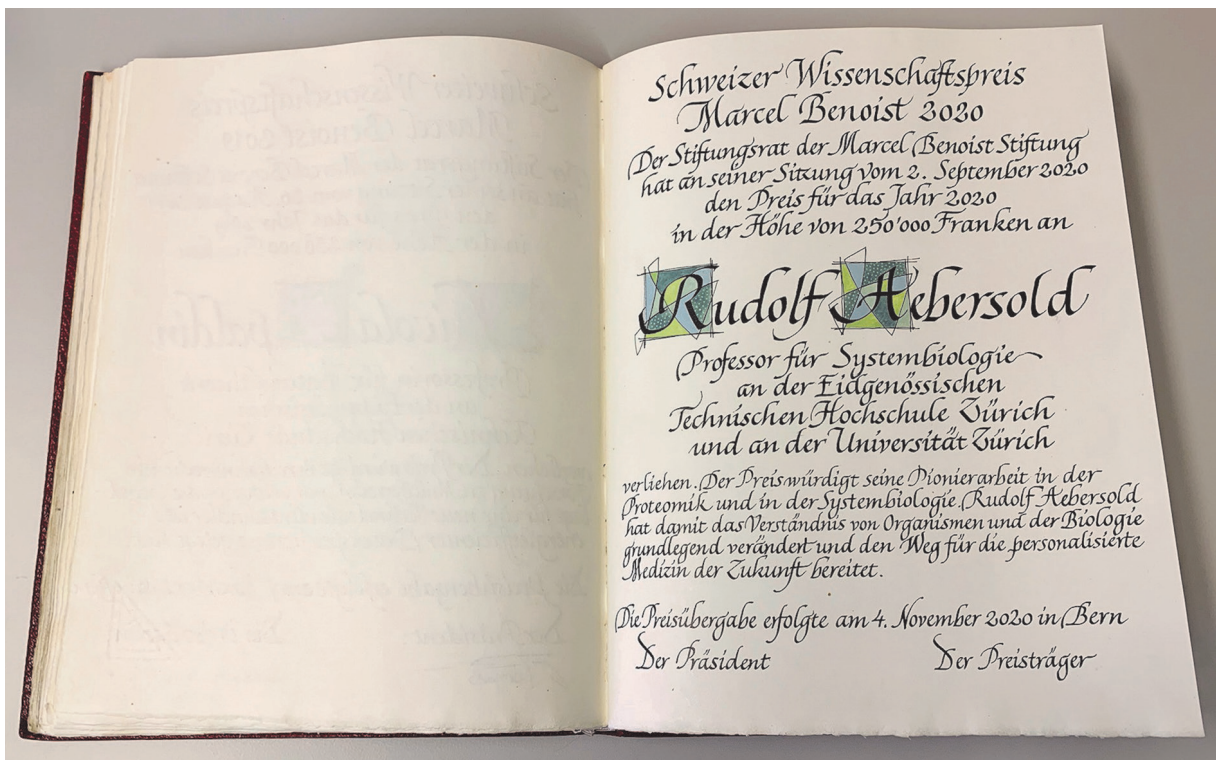 Schweizer Wissenschaftspreis
Marcel Benoist 2020
Der Stiftungsrat der Marcel Benoist Stiftung
hat an seiner Sitzung vom 2. September 2020
den Preis für das Jahr 2020
in der Höhe von 250'000 Franken an
Rudolf Aebersold
Professor für Systembiologie
an der Eidgenössischen
Technischen Hochschule Zürich
und an der Universität Zürich
verliehen. Der Preis würdigt seine Pionierarbeit in der
Proteomik und in der Systembiologie. Rudolf Aebersold
hat damit das Verständnis von Organismen und der Biologie
grundlegend verändert und den Weg für die personalisierte
Medizin der Zukunft bereitet.
Die Preisübergabe erfolgte am 4. November 2020 in Bern
Der Präsident Der Preisträger